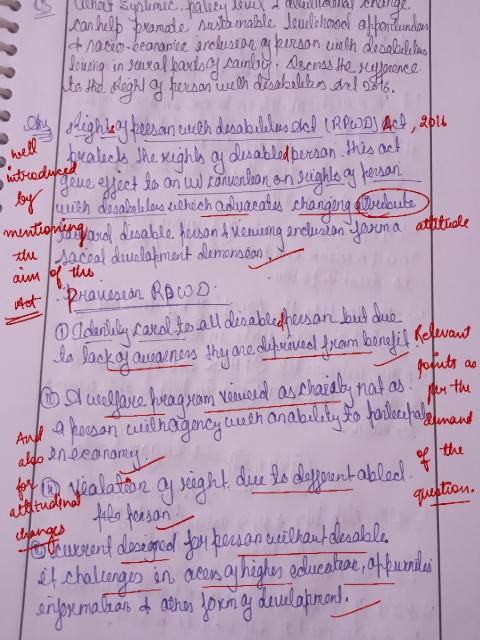 What systemic, policy level & attitudinal change
can help promote sustainable livelihood opportunities
& socio-economic inclusion of person with disabilities
living in rural parts of country. Discuss the refference
to the Right of person with disabilities Act 2016.
Ans
Rights of person with disabilities Act (RPWD) Act, 2016
protects the rights of disabled person. This act
gave effect to an UN convention on rights of person
with disabilities which advocates changing attribute
toward disable person & viewing inclusion form a
social development dimension.
attitude
well
introduced
by
mentioning
the
aim of the
Act
Provision RPWD.
(i) Identity card to all disabled person but due
to lack of awarness they are deprived from benefit
(ii) A welfare program viewed as charity not as
a person with agency with an ability to paticipate
in economy.
(iii) vealation of right due to different abled
to person.
current designed for person without disable
it challenges in acess of higher education, oppurnities
information & other form of development.
Relevant
points as
per the
demand
of the
question.
And
also
for
attitudinal
changes